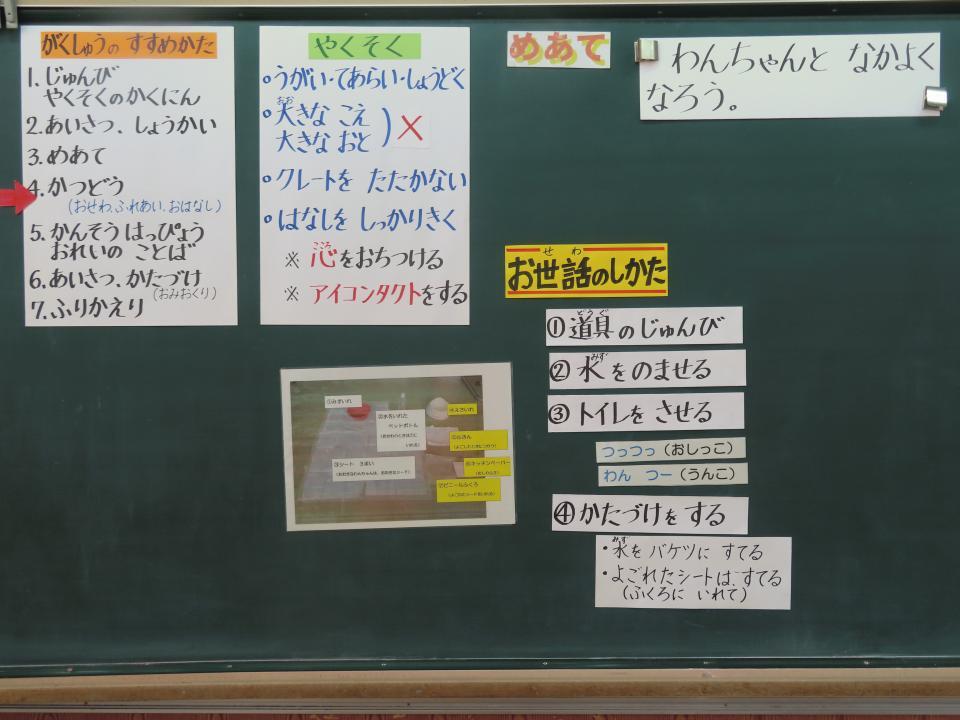 がくしゅうの すすめかた
1. じゅんび
やくそくのかくにん
2. あいさつ、しょうかい
3. めあて
4. かつどう
(おせわ、ふれあい、おはなし)
5. かんそう はっぴょう
おれいの ことば
6. あいさつ、かたづけ
(おみおくり)
7. ふりかえり
やくそく
うがい・てあらい・しょうどく
おお
大きな こえ
大きな おと
×
クレートを たたかない
はなしを しっかりきく
こころ
※ 心をおちつける
※ アイコンタクトをする
めあて
わんちゃんと なかよく
なろう。
せわ
お世話のしかた
どうぐ
①道具のじゅんび
みず
②水をのませる
③トイレを させる
つっつっ(おしっこ)
わん つー(うんこ)
④かたづけをする
みず
・水を バケツに すてる
・よごれたシートは、すてる
(ふくろに いれて)
①みずいれ
②水をいれた
ペットボトル
③シート 3まい
④えさいれ
⑥キッチンペーパー
⑦ビニールふくろ